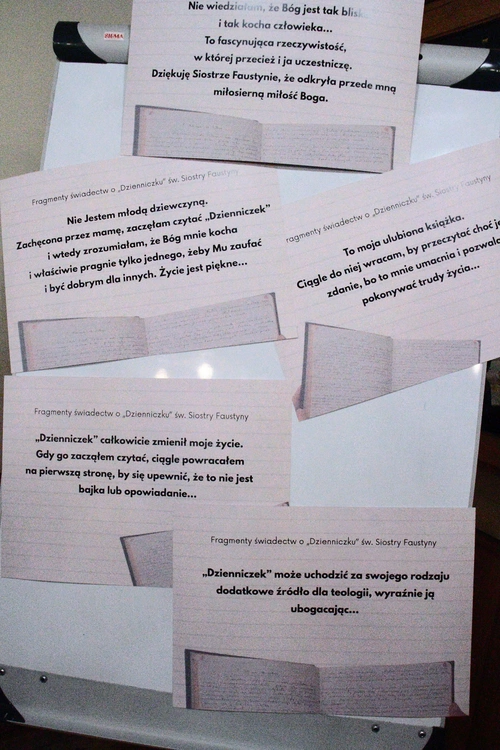 Nie wiedziałam, że Bóg jest tak blisko
i tak kocha człowieka...
To fascynująca rzeczywistość,
w której przecież i ja uczestniczę.
Dziękuję Siostrze Faustynie, że odkryła przede mną
miłosierną miłość Boga.
Fragmenty świadectw o „Dzienniczku” św. Siostry Faustyny
Nie Jestem młodą dziewczyną.
Zachęcona przez mamę, zaczęłam czytać „Dzienniczek”
i wtedy zrozumiałam, że Bóg mnie kocha
i właściwie pragnie tylko jednego, żeby Mu zaufać
i być dobrym dla innych. Życie jest piękne...
ragmenty świadectw o „Dzienniczku” św. Siostry Faustyny
To moja ulubiona książka.
Ciągle do niej wracam, by przeczytać choć je
zdanie, bo to mnie umacnia i pozwala
pokonywać trudy życia...
Fragmenty świadectw o „Dzienniczku” św. Siostry Faustyny
„Dzienniczek” całkowicie zmienił moje życie.
Gdy go zacząłem czytać, ciągle powracałem
na pierwszą stronę, by się upewnić, że to nie jest
bajka lub opowiadanie...
Fragmenty świadectw o „Dzienniczku” św. Siostry Faustyny
„Dzienniczek” może uchodzić za swojego rodzaju
dodatkowe źródło dla teologii, wyraźnie ją
ubogacając...